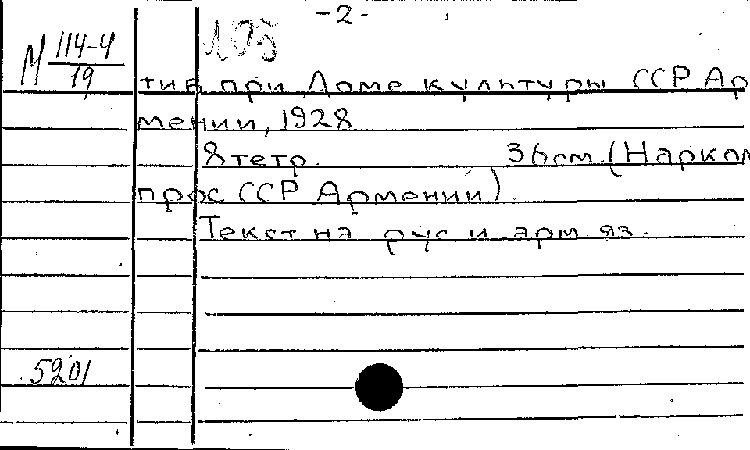 -2-
М 114-4
19
тив при Доме культуры ССР Ар
мении, 1928
8 тетр. 36 см. (Нарком
прос ССР Армении).
Текст на рус и арм яз.
5201